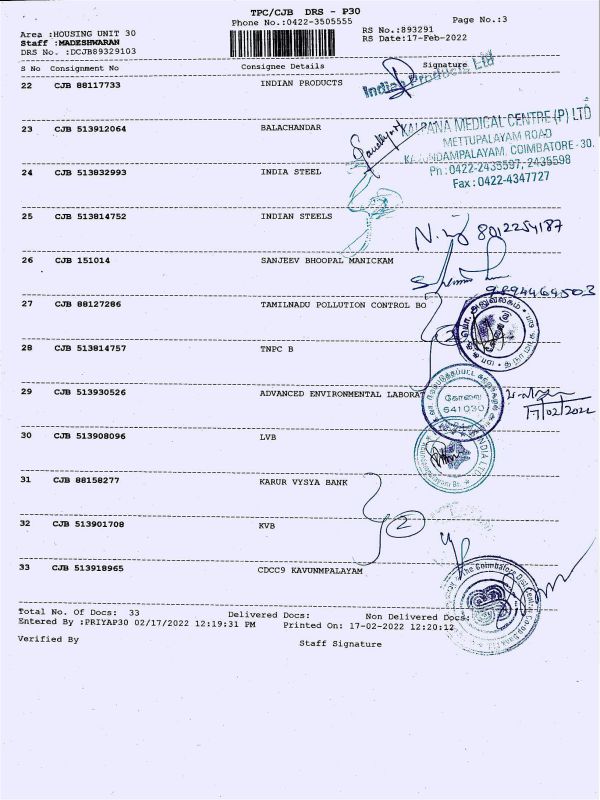 TPC/CJB DRS - P30
Phone No.:0422-3505555
Page No.:3
Area :HOUSING UNIT 30
RS No.:893291
Staff :MADESHWARAN
RS Date:17-Feb-2022
DRS No. :DCJB89329103
S No Consignment No Consignee Details Signature
22 CJB 88117733 INDIAN PRODUCTS
Indian Products Ltd
23 CJB 513912064 BALACHANDAR
KALPANA MEDICAL CENTRE (P) LTD
METTUPALAYAM ROAD
KAVUNDAMPALAYAM, COIMBATORE - 30.
Pn : 0422-2435597, 2435598
Fax : 0422-4347727
24 CJB 513832993 INDIA STEEL
25 CJB 513814752 INDIAN STEELS
8012254187
26 CJB 151014 SANJEEV BHOOPAL MANICKAM
9894464503
27 CJB 88127286 TAMILNADU POLLUTION CONTROL BO
28 CJB 513814757 TNPC B
29 CJB 513930526 ADVANCED ENVIRONMENTAL LABORAT
கோவை
641030
17/02/2022
30 CJB 513908096 LVB
31 CJB 88158277 KARUR VYSYA BANK
2
32 CJB 513901708 KVB
33 CJB 513918965 CDCC9 KAVUNMPALAYAM
The Coimbatore Dist
Total No. Of Docs: 33 Delivered Docs: Non Delivered Docs:
Entered By :PRIYAP30 02/17/2022 12:19:31 PM Printed On: 17-02-2022 12:20:12
Verified By Staff Signature